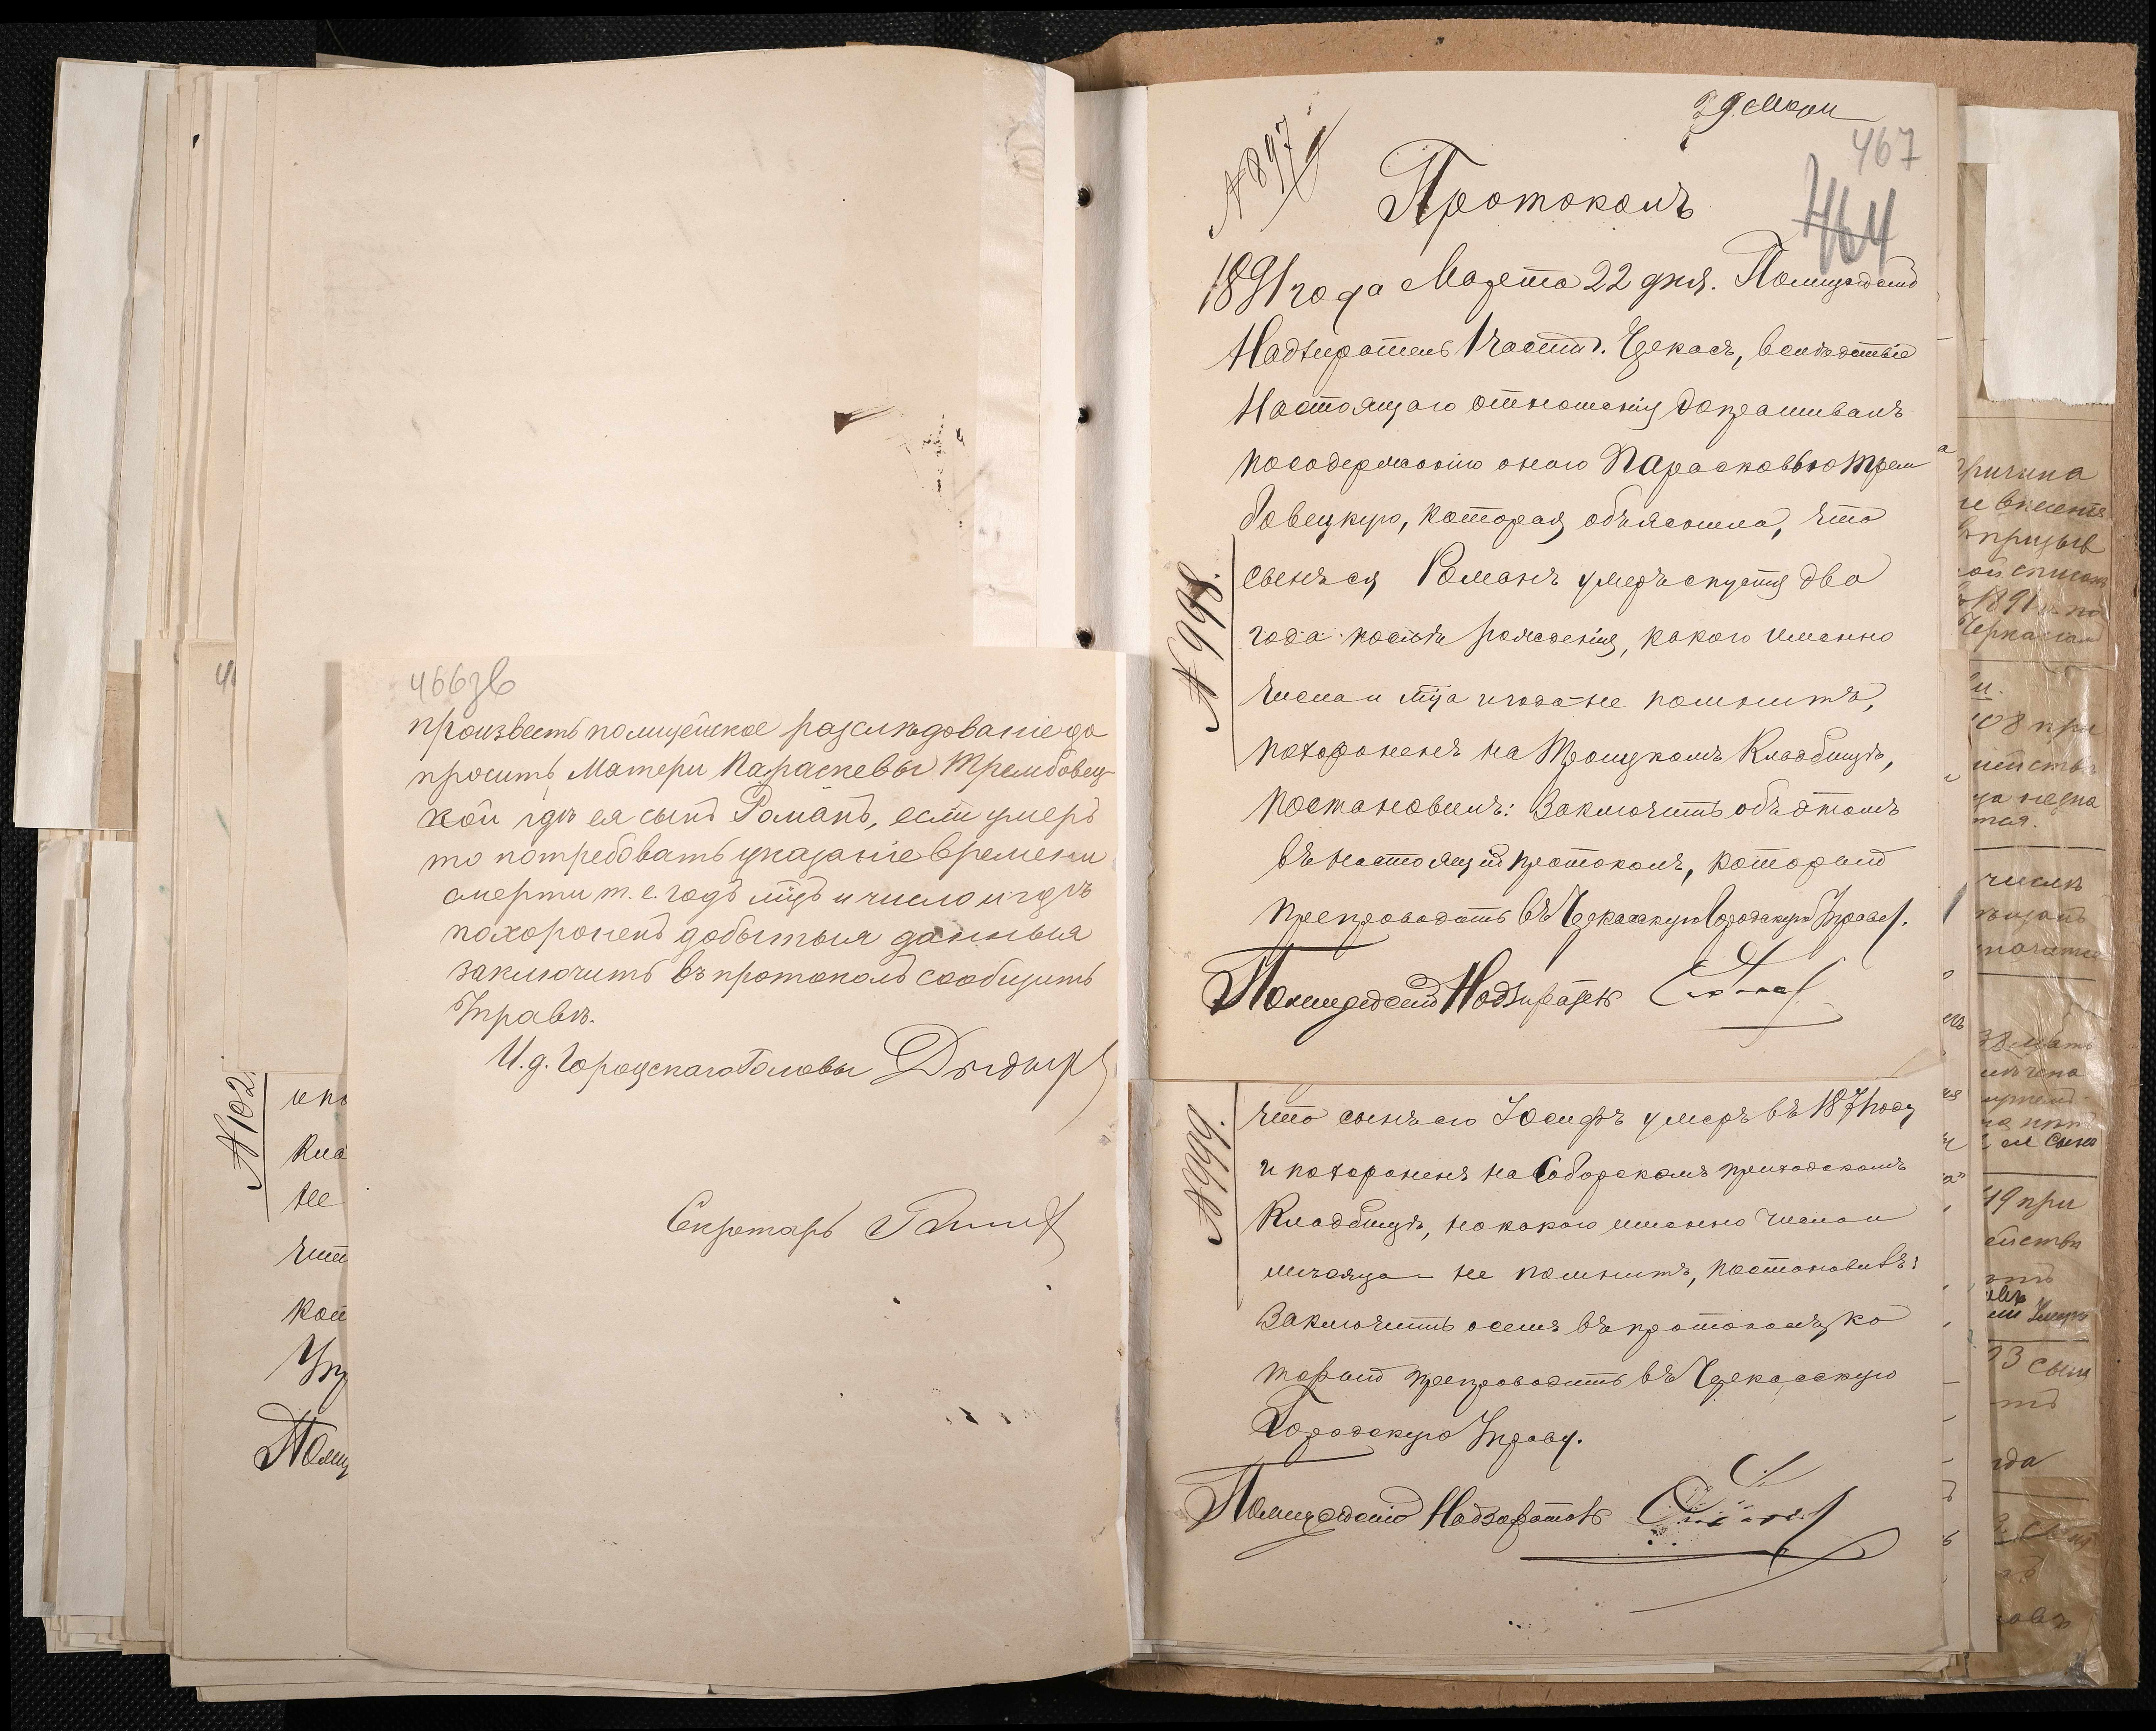 466зв
произвесть полицейское разслѣдованіе до
просить, Матери Параскевы Трембовец-
кой гдѣ ея сынъ Романъ, если умеръ
то потребовать указаніе времени
смерти т. е. годъ мцъ и число и гдѣ
похороненъ добытыя данныя
заключить въ протоколъ сообщить
Управѣ.
И. д. Городскаго Головы
Секретарь
№ 102.
29 Мар
467
464
№ 897
Протоколъ
1891 года Марта 22 дня. Полицейскій
Надзиратель 1 части г. Черкасъ, вслѣдствіе
настоящаго отношенія допрашивалъ
по содержанію онаго Парасковью Трем
бовецкую, которая объяснила, что
сынъ ея Романъ умеръ спустя два
года послѣ рожденія, какого именно
числа и мца и года не помнитъ,
похороненъ на Троицкомъ Кладбищѣ,
постановилъ: Заключить объ этомъ
въ настоящій протоколъ, который
препроводить въ Черкасскую Городскую Управу.
Полицейскій Надзиратель
№ 998.
что сынъ его Іосифъ умеръ въ 1871 году
и похороненъ на Соборскомъ приходскомъ
Кладбищѣ, но какого именно числа и
мѣсяца – не помнитъ, постановилъ:
Заключить о семъ въ протоколъ, ко
торый препроводить въ Черкасскую
Городскую Управу.
Полицейскій Надзиратель
№ 999.
причина